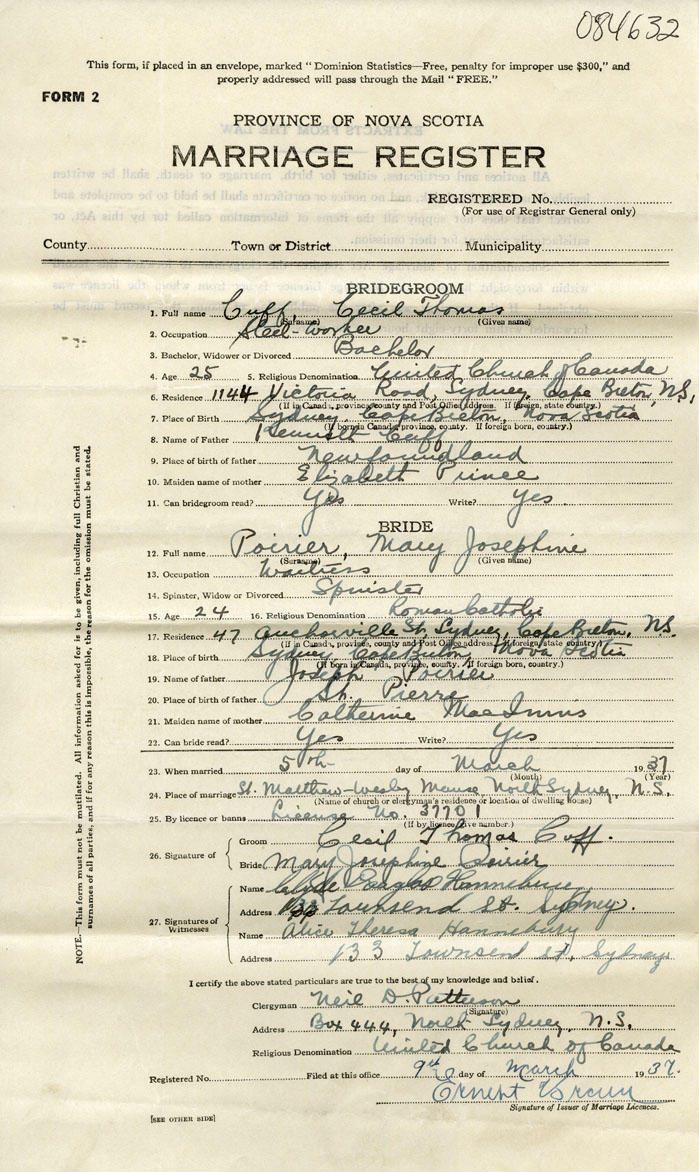 084632
This form, if placed in an envelope, marked "Dominion Statistics—Free, penalty for improper use $300," and
properly addressed will pass through the Mail "FREE."
FORM 2
PROVINCE OF NOVA SCOTIA
MARRIAGE REGISTER
REGISTERED No.
(For use of Registrar General only)
County Town or District Municipality
BRIDEGROOM
1. Full name Cuff, Cecil Thomas
(Surname) (Given name)
2. Occupation Steel-worker
3. Bachelor, Widower or Divorced Bachelor
4. Age 25 5. Religious Denomination United Church of Canada
6. Residence 1144 Victoria Road, Sydney, Cape Breton, N.S.
(If in Canada, province, county and Post Office address. If foreign, state country.)
7. Place of Birth Sydney, Cape Breton, Nova Scotia
(If born in Canada, province, county. If foreign born, country.)
8. Name of Father Kenneth Cuff
9. Place of birth of father Newfoundland
10. Maiden name of mother Elizabeth Prince
11. Can bridegroom read? Yes Write? Yes
BRIDE
12. Full name Poirier, Mary Josephine
(Surname) (Given name)
13. Occupation Waitress
14. Spinster, Widow or Divorced Spinster
15. Age 24 16. Religious Denomination Roman Catholic
17. Residence 47 St, Sydney, Cape Breton, N.S.
(If in Canada, province, county and Post Office address. If foreign, state country.)
18. Place of birth Sydney, Cape Breton, Nova Scotia
(If born in Canada, province, county. If foreign born, country.)
19. Name of father Joseph Poirier
20. Place of birth of father St. Pierre
21. Maiden name of mother Catherine MacInnis
22. Can bride read? Yes Write? Yes
23. When married 5th day of March 1937
(Month) (Year)
24. Place of marriage St. Matthew-Wesley Manse North Sydney, N.S.
(Name of church or clergyman's residence or location of dwelling house)
25. By licence or banns License No. 37701
(If by licence, give number.)
26. Signature of
Groom Cecil Thomas Cuff.
Bride Mary Josephine Poirier
27. Signatures of Witnesses
Name Clyde Hannebury
Address 133 Townsend St. Sydney.
Name Alice Theresa Hannebury
Address 133 Townsend St, Sydney
I certify the above stated particulars are true to the best of my knowledge and belief.
Clergyman Neil D. Patterson
(Signature)
Address Box 444, North Sydney, N.S.
Religious Denomination United Church of Canada
Registered No. Filed at this office 9th day of March 1937.
Ernest
Signature of Issuer of Marriage Licences.
[SEE OTHER SIDE]
NOTE.—This form must not be mutilated. All information asked for is to be given, including full Christian and
surnames of all parties, and if for any reason this is impossible, the reason for the omission must be stated.